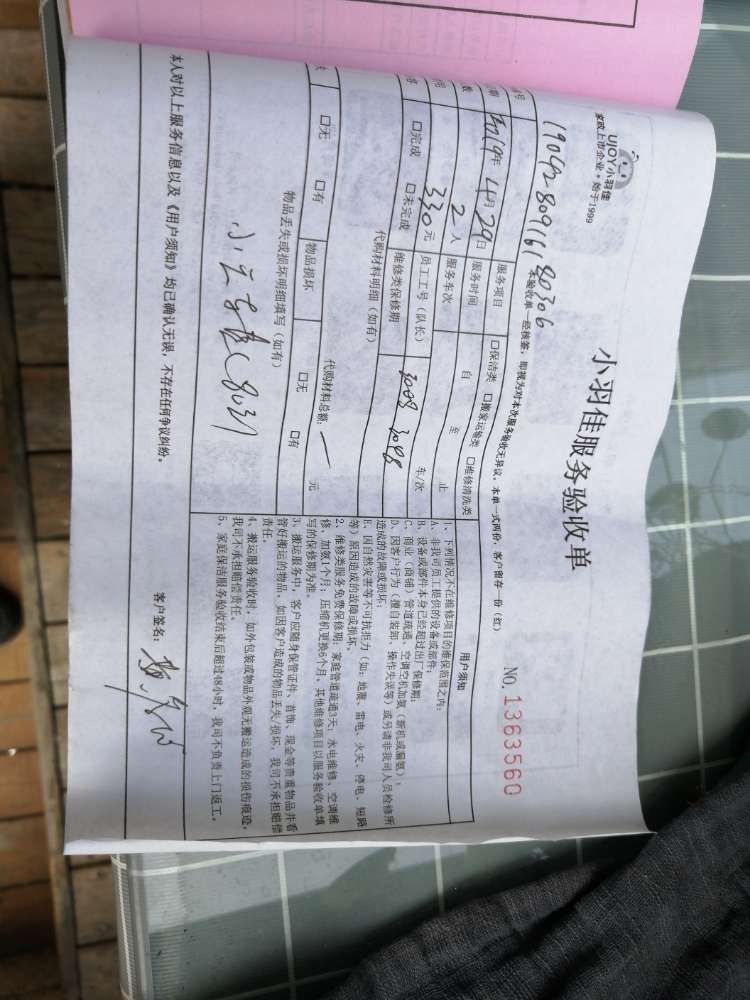 UJOY小羽佳
家政上市企业·始于1999
小羽佳服务验收单
NO. 1363560
本验收单一经核签，即视为对本次服务验收无异议，本单一式两份，客户留存一份（红）
服务项目 □保洁类 □搬家运输类 □维修清洗类
2019年4月29日 服务时间 自 至 止
2人 服务车次 车/次
330元 员工工号（队长） 3008 3098
□完成 □未完成 维修类保修期
代购材料明细（如有）
代购材料总额： 元
□无 □有 物品损坏 □无 □有
物品丢失或损坏明细填写（如有）
用户须知
1、下列情况不在维修项目的维保范围之内：
A、非我司员工提供的设备或部件；
B、设备或部件本身已经超过出厂保修期；
C、商业（商铺）管道疏通、空调空机加氨（新机或漏氨）；
D、因客户行为（擅自装卸、操作失误等）或另请非我司人员检修所
造成的故障或损坏；
E、因自然灾害等不可抗拒力（如：地震、雷电、火灾、停电、短路
等）原因造成的故障或损坏。
2、维修类服务免费保修期，家庭管道疏通3天；水电维修、空调维
修、加氨1个月；压缩机更换6个月，其他维修项目以服务验收单填
写的保修期为准。
3、搬运服务中，客户应随身保管证件、首饰、现金等贵重物品并看
管好搬运的物品，如因客户造成的物品丢失/损坏，我司不承担赔偿
责任。
4、搬运服务验收时，如外包装或物品外观无搬运造成的损伤痕迹，
我司不承担赔偿责任。
5、家庭保洁服务验收结束后超过48小时，我司不负责上门返工。
本人对以上服务信息以及《用户须知》均已确认无误，不存在任何争议纠纷。
客户签名：